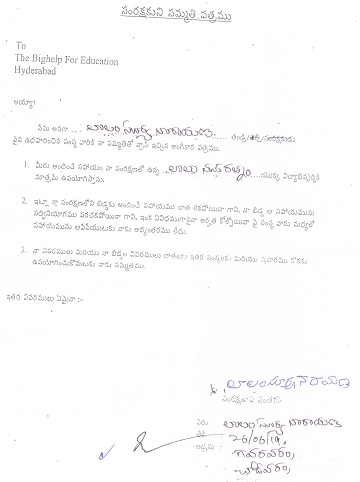 సంరక్షకుని సమ్మతి పత్రము
To
The Bighelp For Education
Hyderabad
అయ్యా!
నేను అనగా .... లాలం సూర్య నారాయణ .... తండ్రి/తల్లి/సంరక్షకుడు
పైన ఉదహరించిన సంస్థ వారికి నా సమ్మతితో వ్రాసి ఇచ్చిన అంగీకార పత్రము.
1. మీరు అందించే సహాయం నా సంరక్షణలో ఉన్న ...యొక్క విద్యాభివృద్ధికి
మాత్రమే ఉపయోగిస్తాను.
2. ఇట్లా నా సంరక్షణలోని బిడ్డకు అందించే సహాయము దాత లేకపోయినా గాని, నా బిడ్డ ఆ సహాయమును
సద్వినియోగము పరచకపోయినా గాని, ఇంక ఏవిధముగానైనా అర్హత కోల్పోయినా పై సంస్థ వారు మధ్యలో
సహాయమును ఆపివేయుటకు నాకు అభ్యంతరము లేదు.
3. నా వివరములు మరియు నా బిడ్డల వివరములు దాతలకు ఇతర సంస్థలకు మరియు ప్రచారము కొరకు
ఉపయోగించుకొనుటకు నాకు సమ్మతము.
ఇతర వివరములు ఏమైనా :-
లాలం సూర్యనారాయణ
సంరక్షకుని సంతకం
పేరు లాలం సూర్య నారాయణ
తేది 26/06/19,
అడ్రసు : గవరవరం,
చోడవరం,